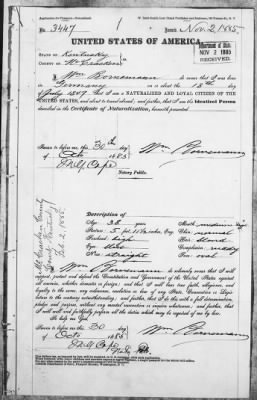 No. 3447
Issued Nov. 2 1885
UNITED STATES OF AMERICA.
STATE OF Kentucky
COUNTY OF McCracken
Department of State,
NOV 2 1885
RECEIVED.
I Wm Bornemann do swear that I was born
in Germany on or about the 15th day
of July 1847, that I am a NATURALIZED AND LOYAL CITIZEN OF THE
UNITED STATES, and about to travel abroad; and further, that I am the Identical Person
described in the Certificate of Naturalization, herewith presented.
Sworn to before me this 30th
day of Oct 1885
Wm Bornemann
Notary Public.
Description of
Age 38 years
Stature 5 feet inches, Eng.
Forehead high
Nose straight
Mouth medium
Chin normal
Hair blond
Face oval
I, Wm Bornemann do solemnly swear that I will
support, protect and defend the Constitution and Government of the United States against
all enemies, whether domestic or foreign; and that I will bear true faith, allegiance, and
loyalty to the same, any ordinance, resolution or law of any State, Convention or Legis-
lature to the contrary notwithstanding; and further, that I do this with a full determination,
pledge and purpose, without any mental reservation or evasion whatsoever; and further, that
I will well and faithfully perform all the duties which may be required of me by law.
So help me God.
Sworn to before me this 30
day of Oct 1885
Wm Bornemann